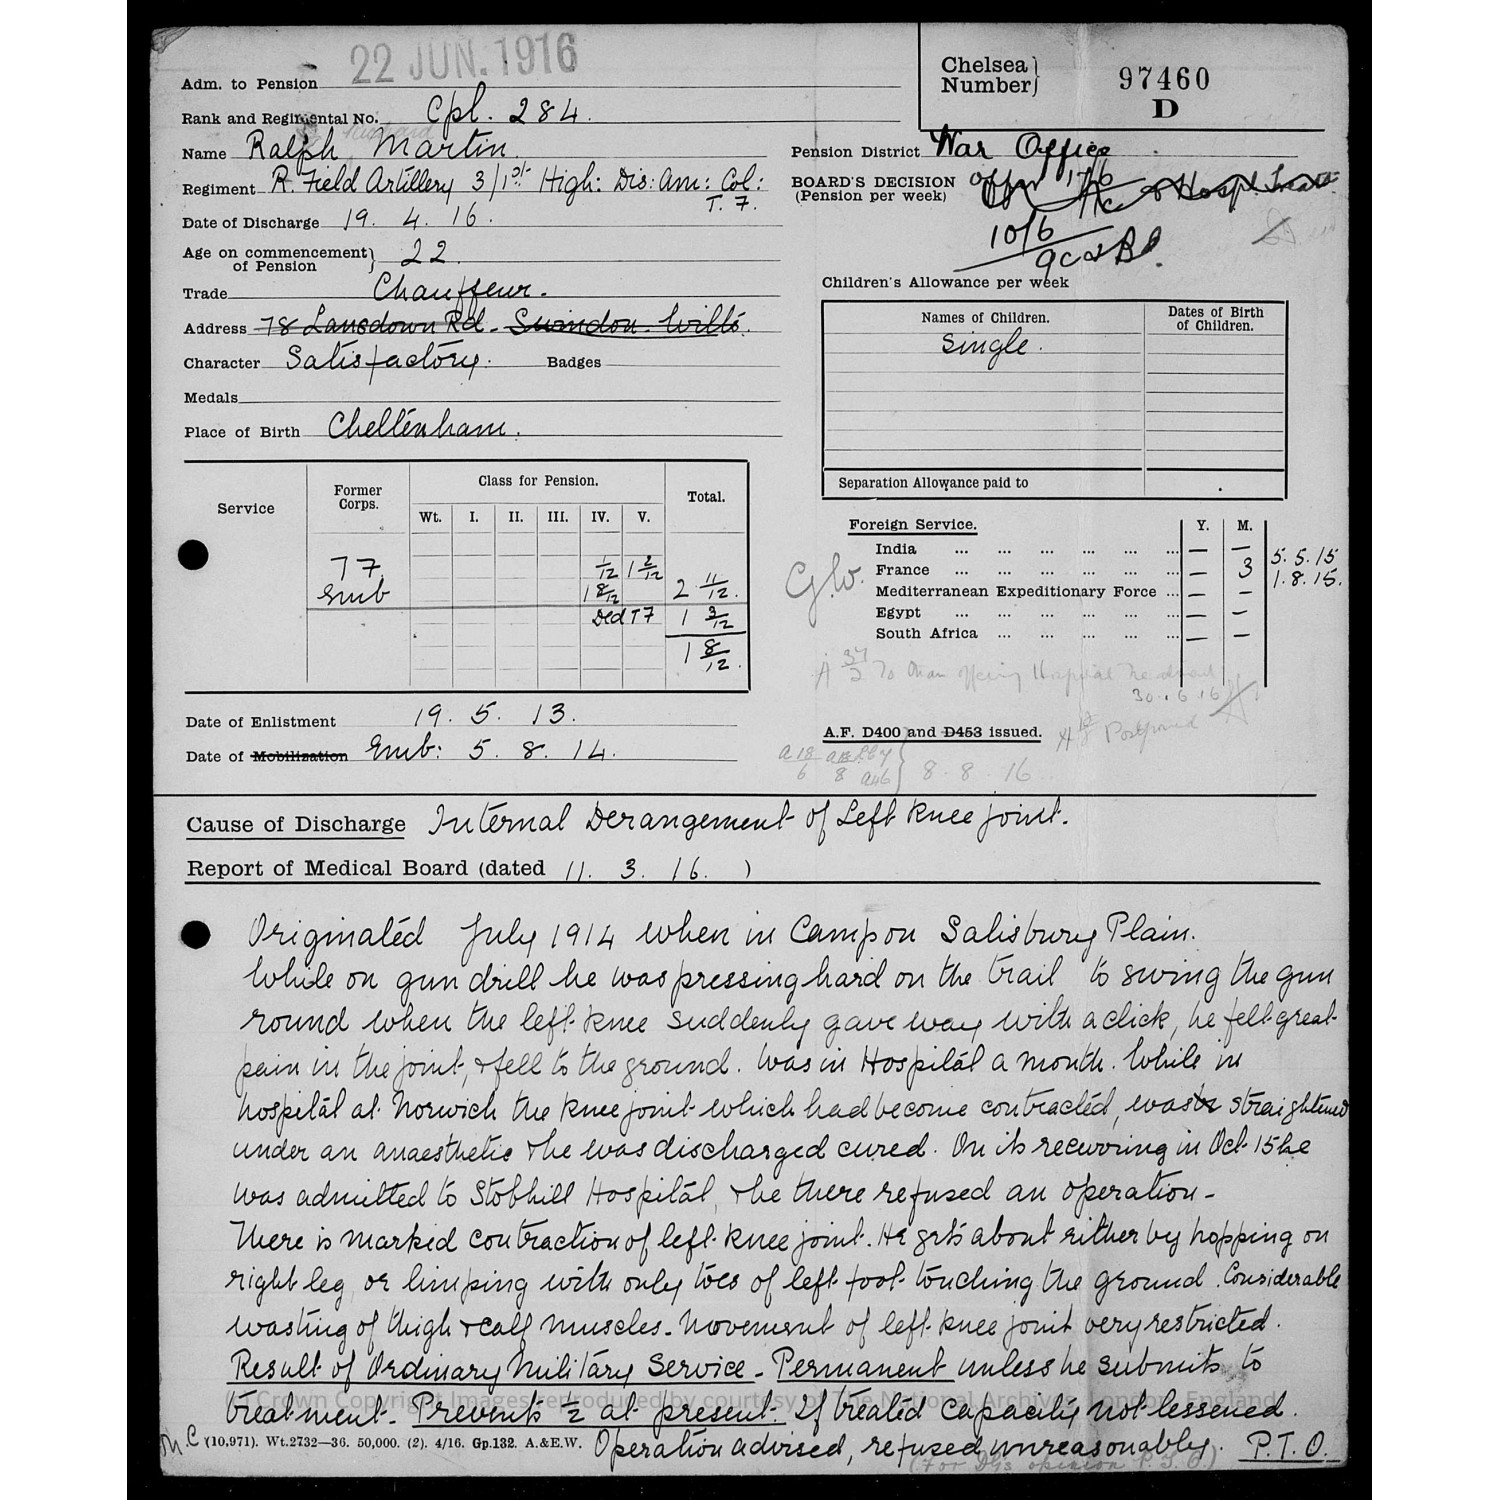 22 JUN. 1916
Adm. to Pension
Chelsea Number} 97460 D
Rank and Regimental No. Cpl. 284.
Name Ralph Martin
Pension District War Office
Regiment R. Field Artillery 3/1st High: Dis: Am: Col: T.F.
BOARD'S DECISION (Pension per week)
10/6
Date of Discharge 19. 4. 16.
Age on commencement of Pension} 22.
Trade Chauffeur.
Address 78 Lansdown Rd. Swindon. Wilts.
Character Satisfactory. Badges
Medals
Place of Birth Cheltenham.
Children's Allowance per week
Names of Children. Dates of Birth of Children.
Single.
Separation Allowance paid to
Service Former Corps. Class for Pension. Total.
Wt. I. II. III. IV. V.
TF 1/12 1 2/12
Emb 1 8/12 2 11/12.
Ded TF 1 3/12
1 8/12.
Foreign Service. Y. M.
India ... ... ... ... ... ... — — 5. 5. 15
France ... ... ... ... ... ... — 3 1. 8. 15.
Mediterranean Expeditionary Force ... — —
Egypt ... ... ... ... ... — —
South Africa ... ... ... ... ... — —
30.6.16
Date of Enlistment 19. 5. 13.
Date of Mobilization Emb: 5. 8. 14.
A.F. D400 and D453 issued.
Postponed
8. 8. 16
Cause of Discharge Internal Derangement of Left Knee joint.
Report of Medical Board (dated 11. 3. 16. )
Originated July 1914 when in Camp on Salisbury Plain.
While on gun drill he was pressing hard on the trail to swing the gun
round when the left knee suddenly gave way with a click, he felt great
pain in the joint, & fell to the ground. Was in Hospital a month. While in
hospital at Norwich the knee joint which had become contracted, was straightened
under an anaesthetic & he was discharged cured. On its recurring in Oct 15 he
was admitted to Stobhill Hospital, & he there refused an operation -
There is marked contraction of left knee joint. He gets about either by hopping on
right leg, or limping with only toes of left foot touching the ground. Considerable
wasting of thigh & calf muscles. Movement of left knee joint very restricted.
Result of Ordinary Military Service - Permanent unless he submits to
treatment. Prevents 1/2 at present. If treated capacity not lessened.
© Crown Copyright Images reproduced by courtesy of The National Archives, London, England
M.C (10,971). Wt.2732—36. 50,000. (2). 4/16. Gp.132. A.&E.W. Operation advised, refused unreasonably. P.T.O.
(For DGs opinion P.T.O.)